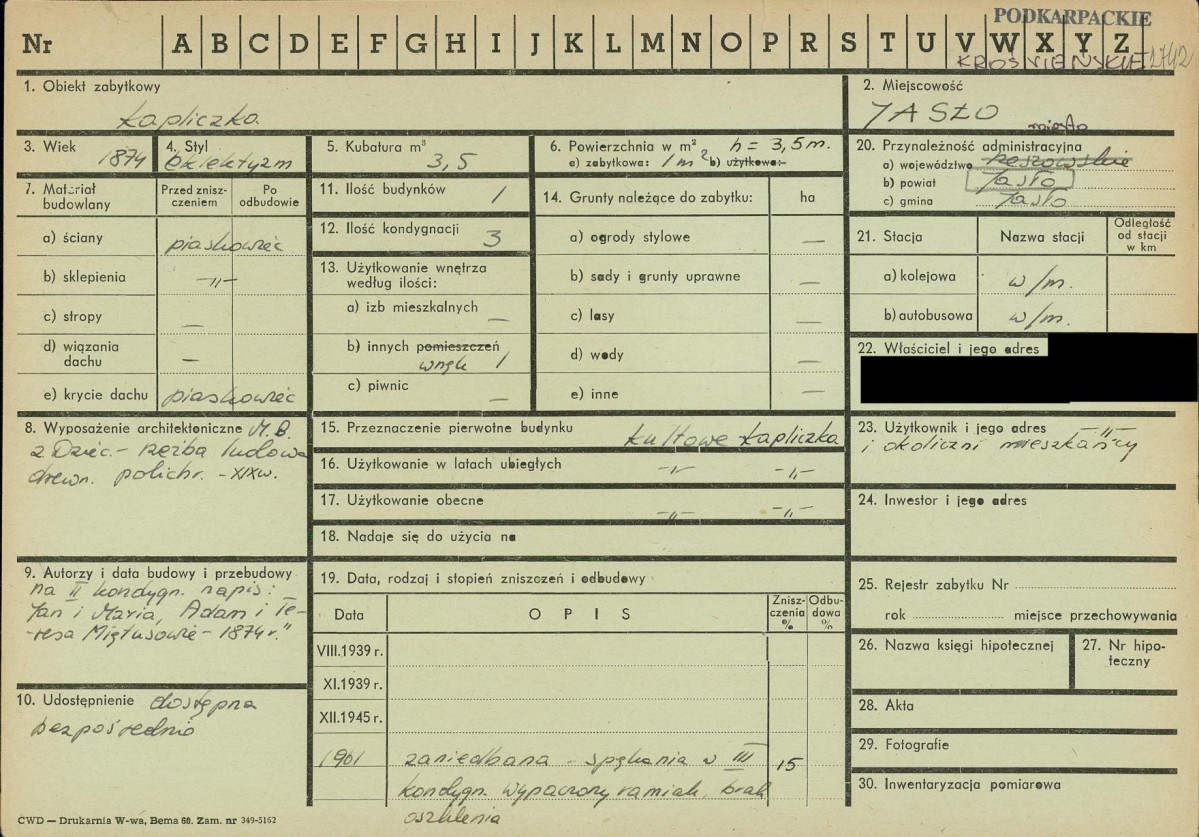 PODKARPACKIE
Nr A B C D E F G H I J K L M N O P R S T U V W X Y Z
KROŚNIEŃSKIE 2742
1. Obiekt zabytkowy
kapliczka
2. Miejscowość
JASŁO
miasto
3. Wiek
1874
4. Styl
eklektyzm
5. Kubatura m³
3,5
6. Powierzchnia w m² h = 3,5 m.
a) zabytkowa: 1 m² b) użytkowa: -
20. Przynależność administracyjna
a) województwo rzeszowskie
b) powiat Jasło
c) gmina Jasło
7. Materiał budowlany
Przed zniszczeniem
Po odbudowie
a) ściany piaskowiec
b) sklepienia -„-
c) stropy —
d) wiązania dachu —
e) krycie dachu piaskowiec
11. Ilość budynków 1
12. Ilość kondygnacji 3
13. Użytkowanie wnętrza według ilości:
a) izb mieszkalnych —
b) innych pomieszczeń
wnęk 1
c) piwnic —
14. Grunty należące do zabytku: ha
a) ogrody stylowe —
b) sady i grunty uprawne —
c) lasy —
d) wody —
e) inne —
21. Stacja
Nazwa stacji
Odległość od stacji w km
a) kolejowa w/m.
b) autobusowa w/m.
22. Właściciel i jego adres
8. Wyposażenie architektoniczne M.B.
z Dziec. - rzeźba ludowa
drewn. polichr. - XIXw.
15. Przeznaczenie pierwotne budynku kultowe kapliczka
16. Użytkowanie w latach ubiegłych -„- -„-
17. Użytkowanie obecne -„- -„-
18. Nadaje się do użycia na
23. Użytkownik i jego adres -„-
i okoliczni mieszkańcy
24. Inwestor i jego adres
9. Autorzy i data budowy i przebudowy
na II kondygn. napis:
Jan i Maria, Adam i Te-
-resa Migtusowie - 1874 r."
10. Udostępnienie dostępna
bezpośrednio
19. Data, rodzaj i stopień zniszczeń i odbudowy
Data
OPIS
Zniszczenia %
Odbudowa %
VIII.1939 r.
XI.1939 r.
XII.1945 r.
1961 zaniedbana - spękania w III 15
kondygn. wypaczony ramiak, brak
oszklenia
25. Rejestr zabytku Nr
rok miejsce przechowywania
26. Nazwa księgi hipotecznej
27. Nr hipoteczny
28. Akta
29. Fotografie
30. Inwentaryzacja pomiarowa
CWD — Drukarnia W-wa, Bema 60. Zam. nr 349-5162